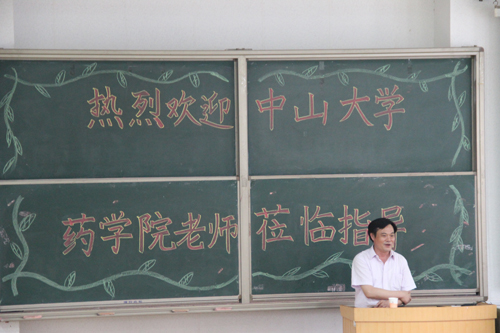 热烈欢迎中山大学
药学院老师莅临指导